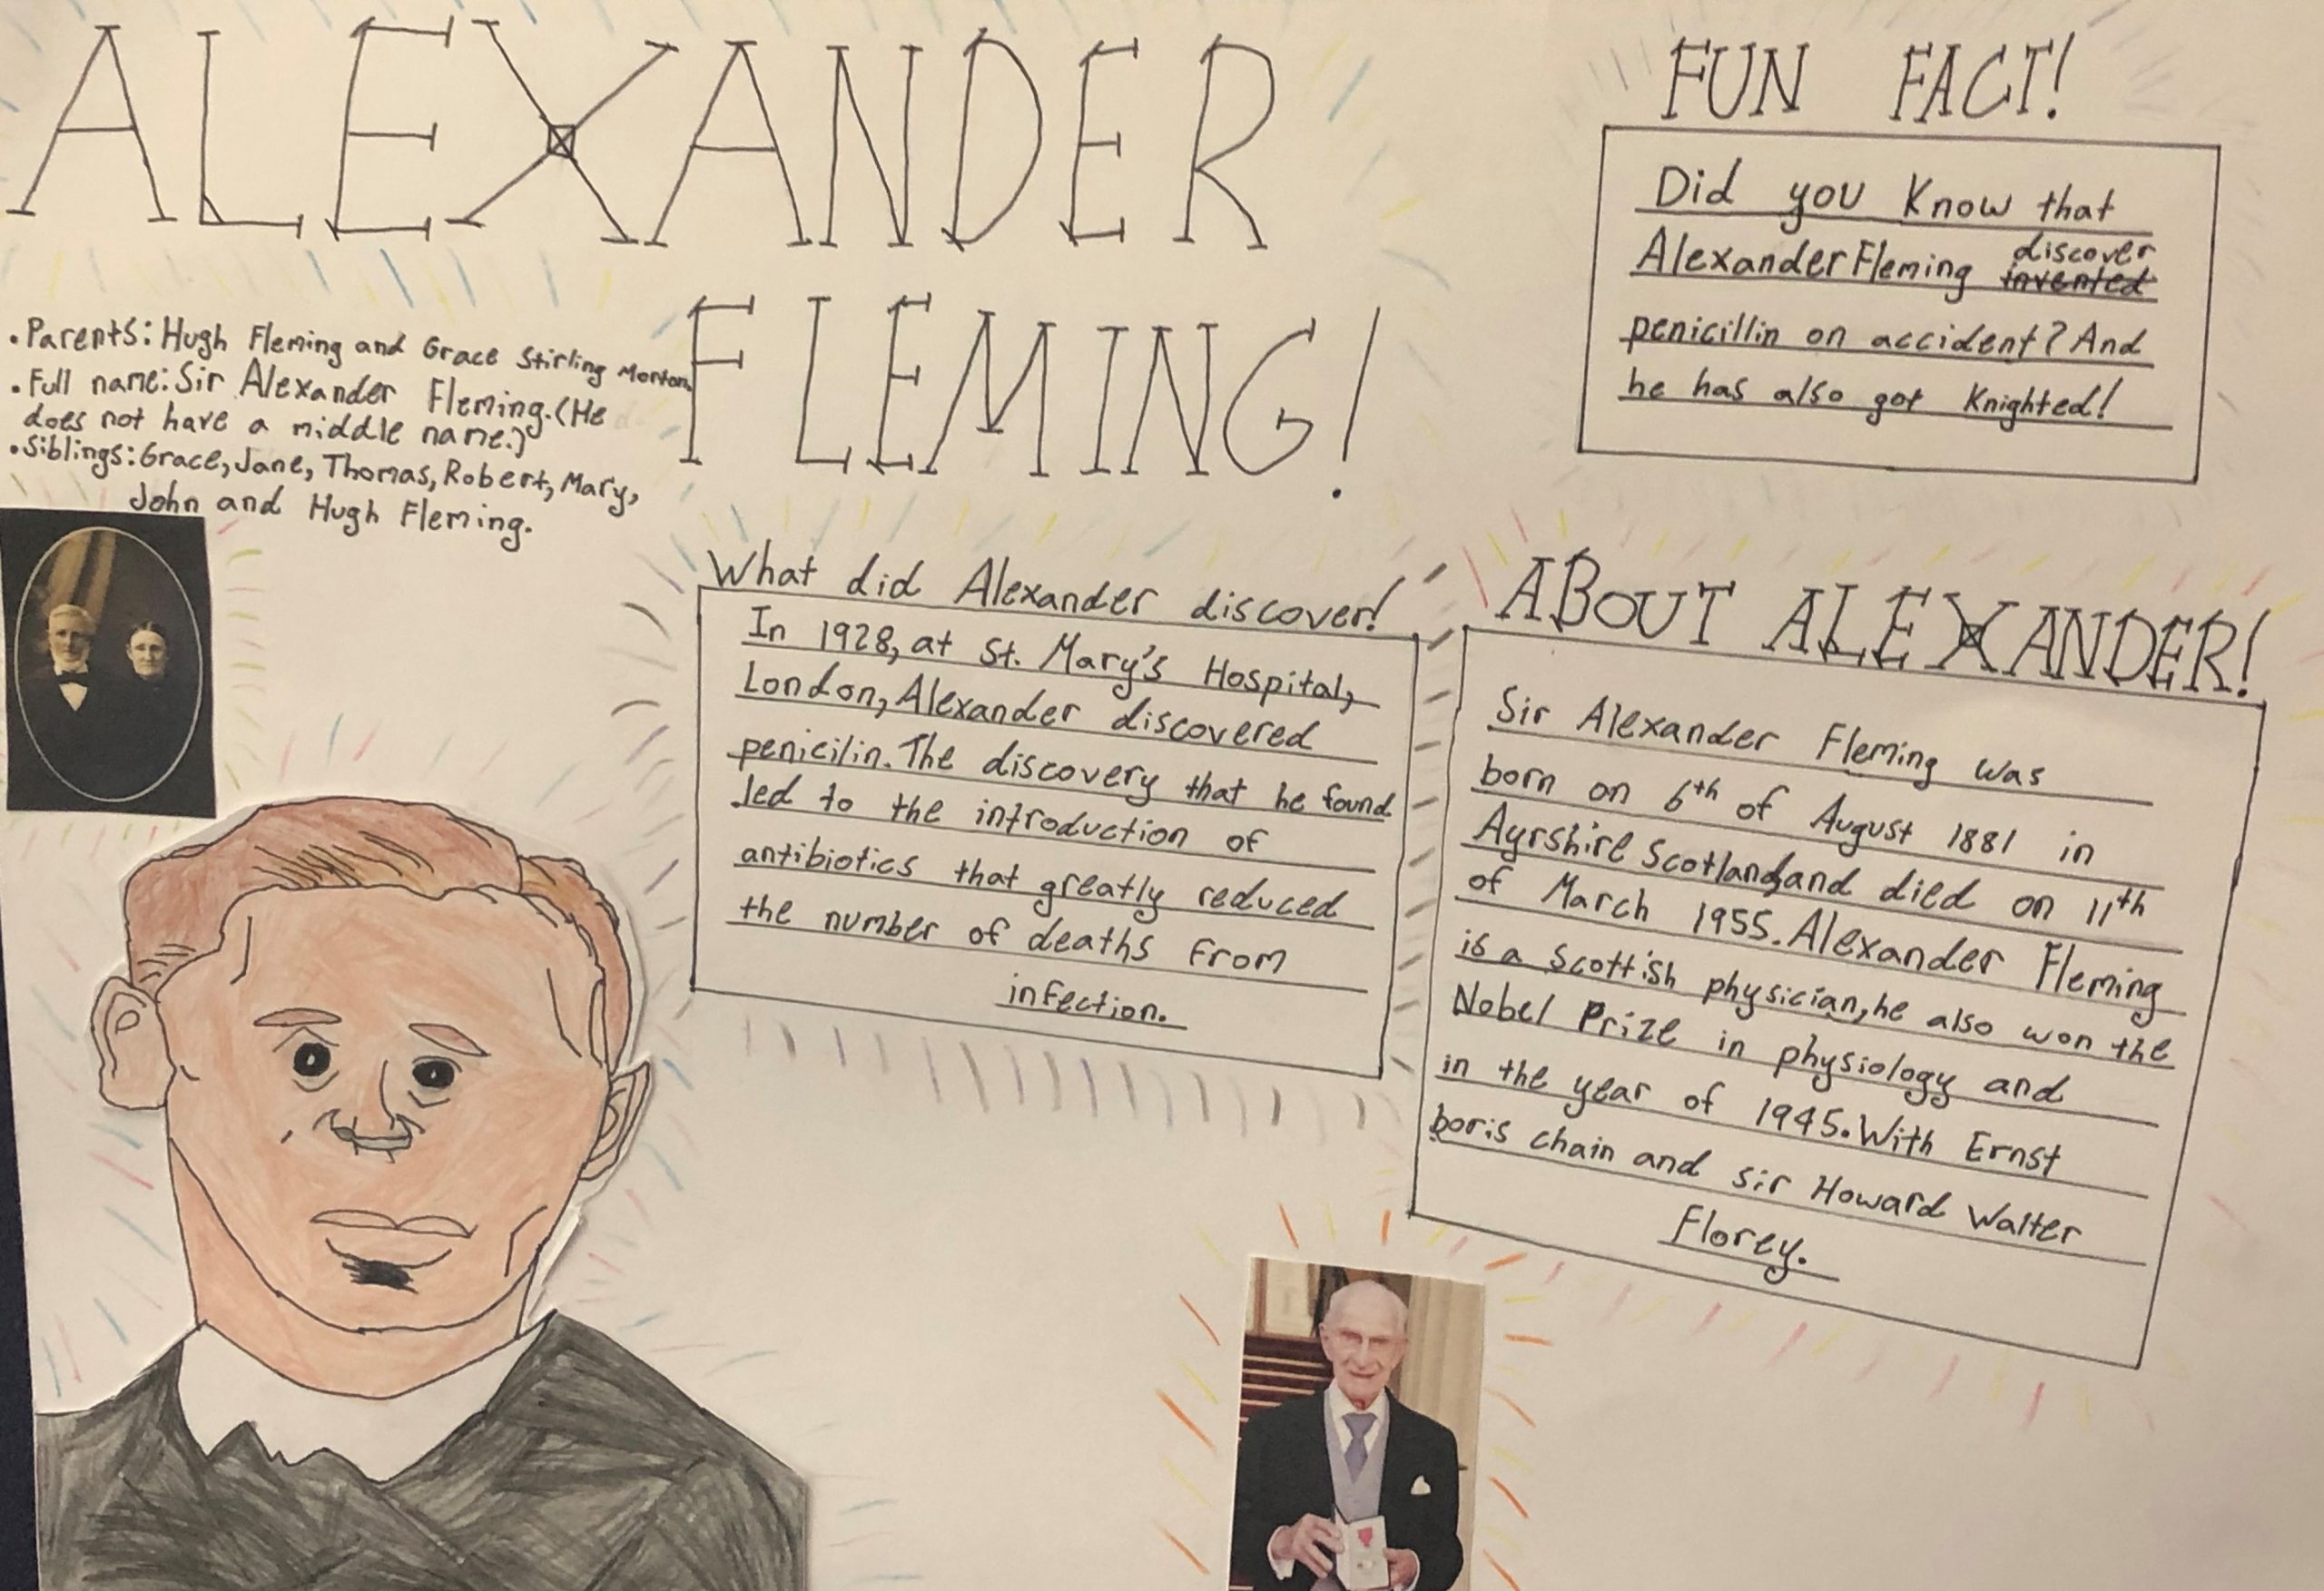 ALEXANDER
FLEMING!
• Parents: Hugh Fleming and Grace Stirling Morton.
• Full name: Sir Alexander Fleming. (He
does not have a middle name.)
• Siblings: Grace, Jane, Thomas, Robert, Mary,
John and Hugh Fleming.
FUN FACT!
Did you Know that
Alexander Fleming discover invented
penicillin on accident? And
he has also got Knighted!
What did Alexander discover!
In 1928, at St. Mary's Hospital,
London, Alexander discovered
penicilin. The discovery that he found
led to the introduction of
antibiotics that greatly reduced
the number of deaths from
infection.
ABOUT ALEXANDER!
Sir Alexander Fleming was
born on 6th of August 1881 in
Ayrshire Scotland, and died on 11th
of March 1955. Alexander Fleming
is a Scottish physician, he also won the
Nobel Prize in physiology and
in the year of 1945. With Ernst
boris chain and sir Howard Walter
Florey.